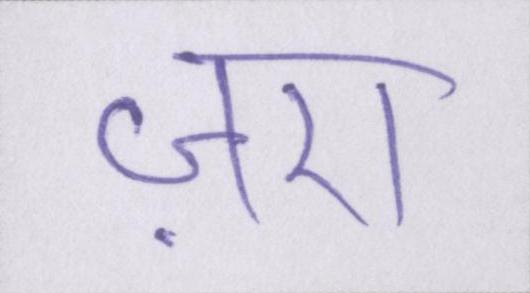 ज़रा